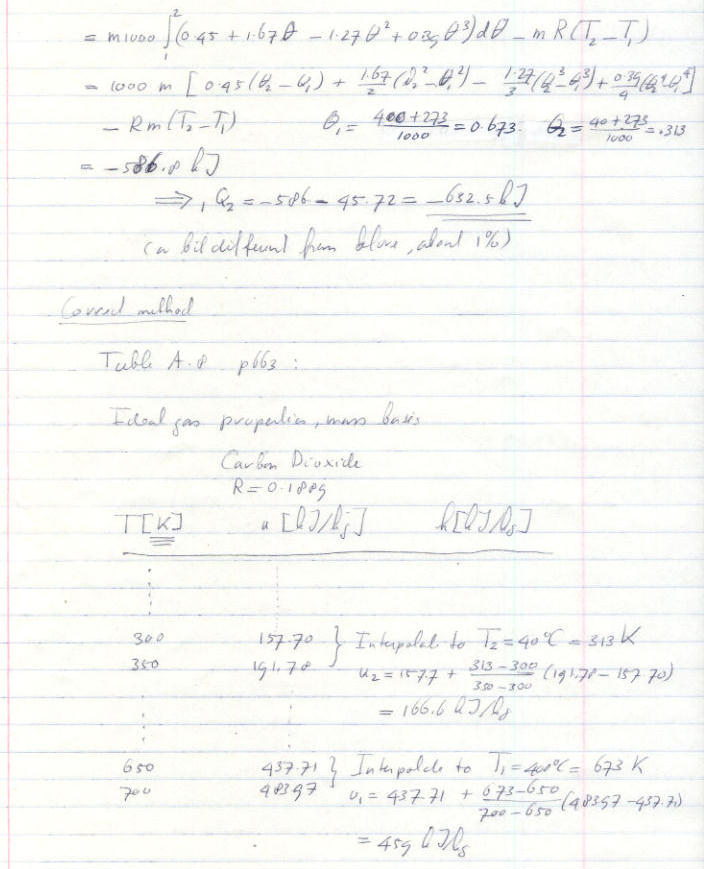 = m1000 ∫₁² (0.45 + 1.67θ - 1.27θ² + 0.39θ³)dθ - mR(T₂-T₁)
= 1000 m [0.45(θ₂-θ₁) + 1.67/2 (θ₂²-θ₁²) - 1.27/3 (θ₂³-θ₁³) + 0.39/4 (θ₂⁴-θ₁⁴)]
- Rm(T₂-T₁) θ₁ = (400+273)/1000 = 0.673. θ₂ = (40+273)/1000 = .313
= -586.8 kJ
⟹ ₁Q₂ = -586 - 45.72 = -632.5 kJ
(a bit different from before, about 1%)
Correct method
Table A.8 p663 :
Ideal gas properties, mass basis
Carbon Dioxide
R = 0.1889
T[K] u [kJ/kg] h[kJ/kg]
300 157.70 } Interpolate to T₂ = 40°C = 313 K
350 191.78 u₂ = 157.7 + (313-300)/(350-300) (191.78 - 157.70)
= 166.6 kJ/kg
650 437.71 } Interpolate to T₁ = 400°C = 673 K
700 483.97 u₁ = 437.71 + (673-650)/(700-650) (483.97 - 437.71)
= 459 kJ/kg